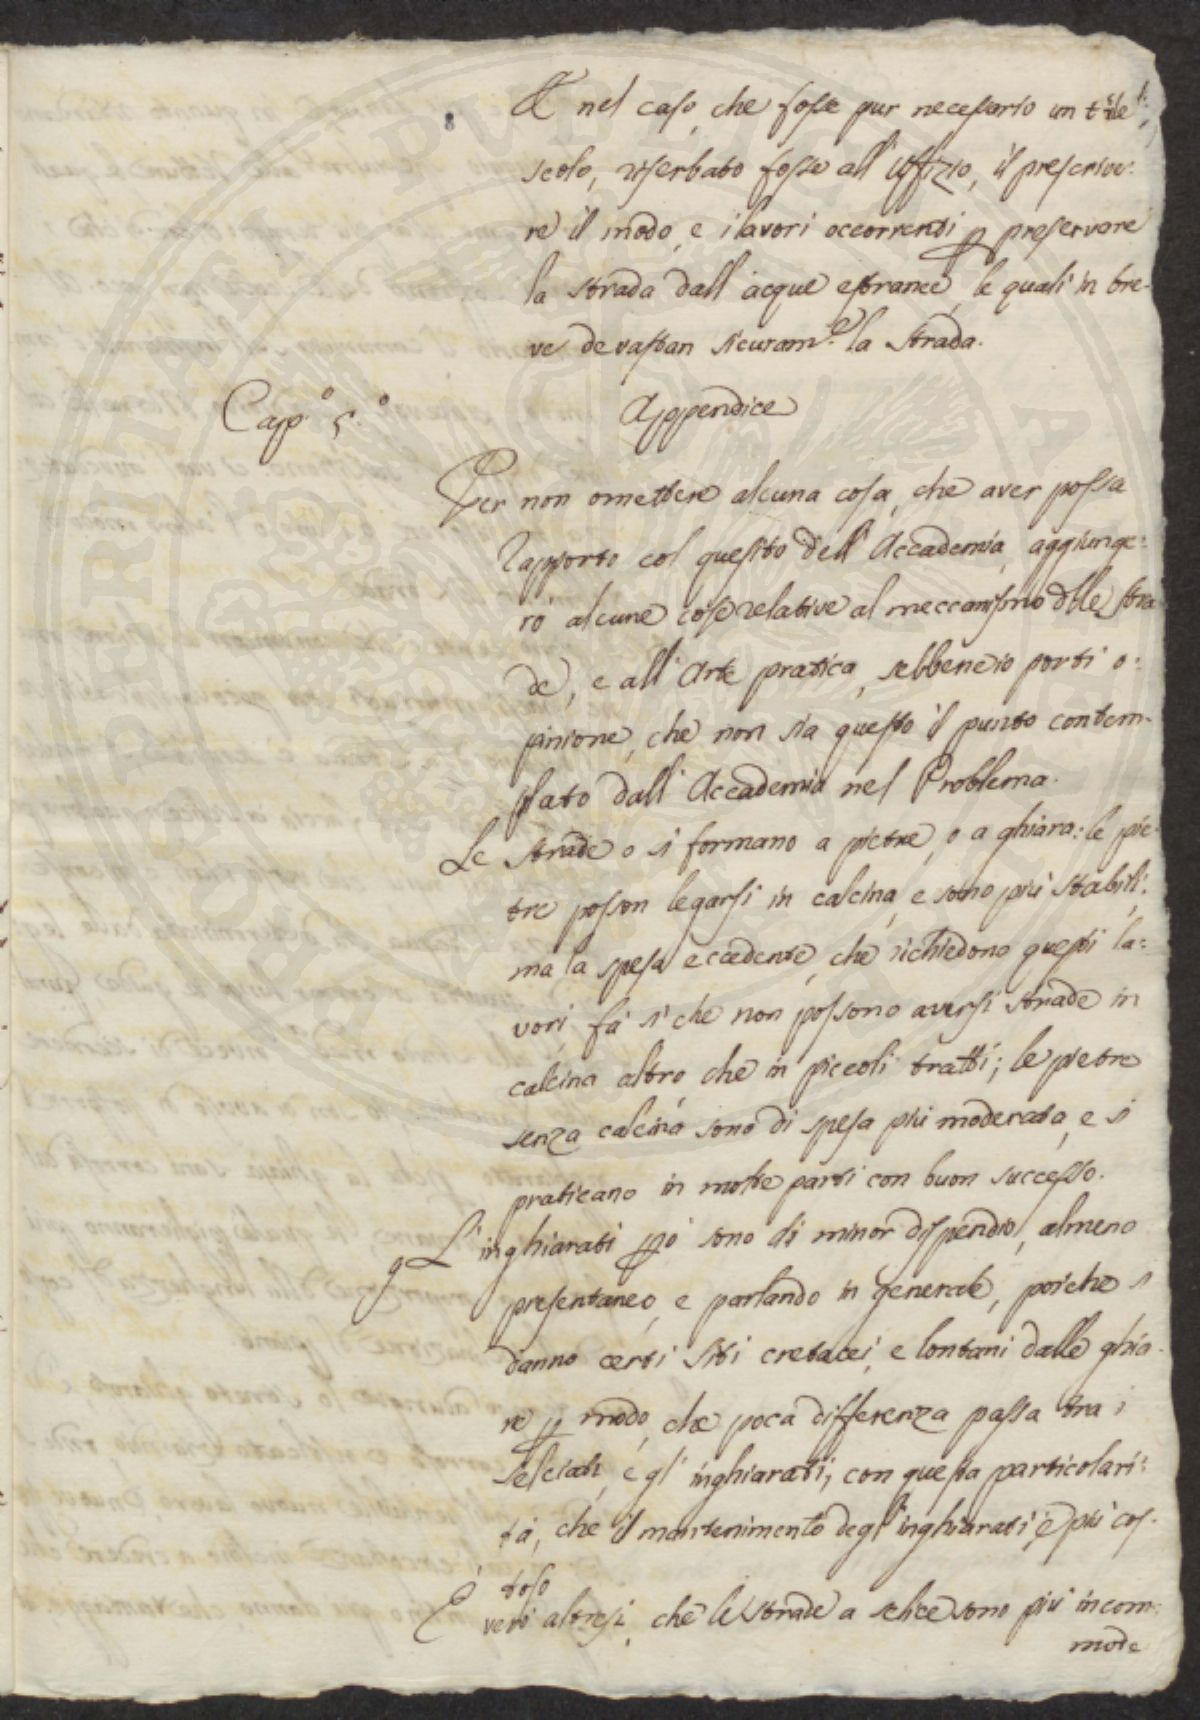 E nel caso, che fosse pur necessario un tale
scolo, riserbato fosse all'Uffizio, il prescrive:
re il modo, e i lavori occorrenti p preservare
la strada dall'acque estranee, le quali in bre-
ve devastan sicuram.e la strada.
Cap.o 5.o Appendice
Per non omettere alcuna cosa, che aver possa
rapporto col quesito dell'Accademia, aggiunge:
rò alcune cose relative al meccanismo dlle stra
de, e all'Arte pratica, sebbene io porti o:
pinione, che non sia questo il punto contem-
plato dall'Accademia nel Problema.
Le strade o si formano a pietre, o a ghiara: le pie-
tre posson legarsi in calcina, e sono più stabili;
ma la spesa eccedente, che richiedono questi la:
vori, fà sì che non possono aversi strade in
calcina altro che in piccoli tratti; le pietre
senza calcina sono di spesa più moderata, e si
praticano in molte parti con buon successo.
Gl'inghiarati pò sono di minor dispendio, almeno
presentaneo, e parlando in generale, poiche si
danno certi siti cretacei, e lontani dalle ghia-
re p modo, che poca differenza passa tra i
selciati, e gl'inghiarati; con questa particolari:
tà, che il mantenimento degl'inghiarati, è più cos-
toso
È vero altresì, che le strade a selice sono più incom:
mode